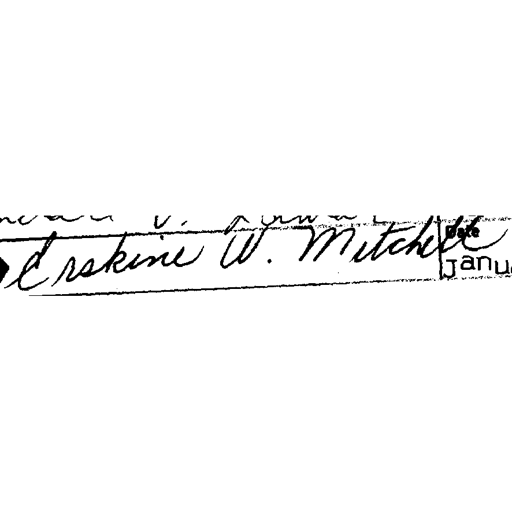 Erskine W. Mitchell
Date
Janu